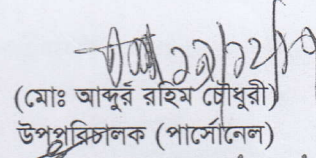 (মোঃ আব্দুর রহিম চৌধুরী)
উপপরিচালক (পার্সোনেল)